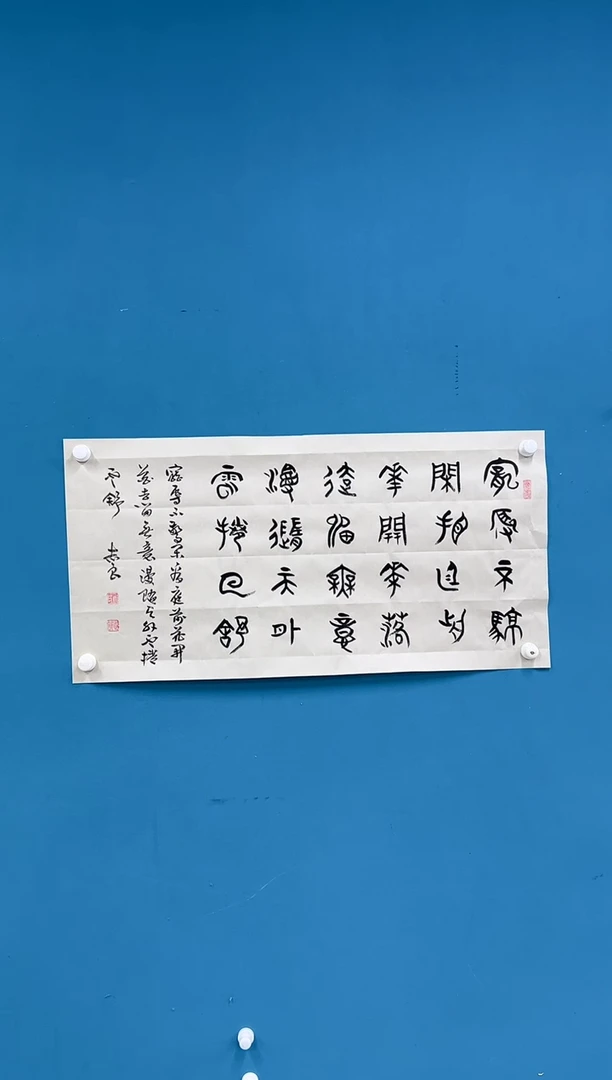 寵辱不驚
閑看庭前
華開華落
去留無意
漫隨天外
雲捲云舒
寵辱不驚閑看庭前花開
落去留無意漫隨天外雲捲
雲舒